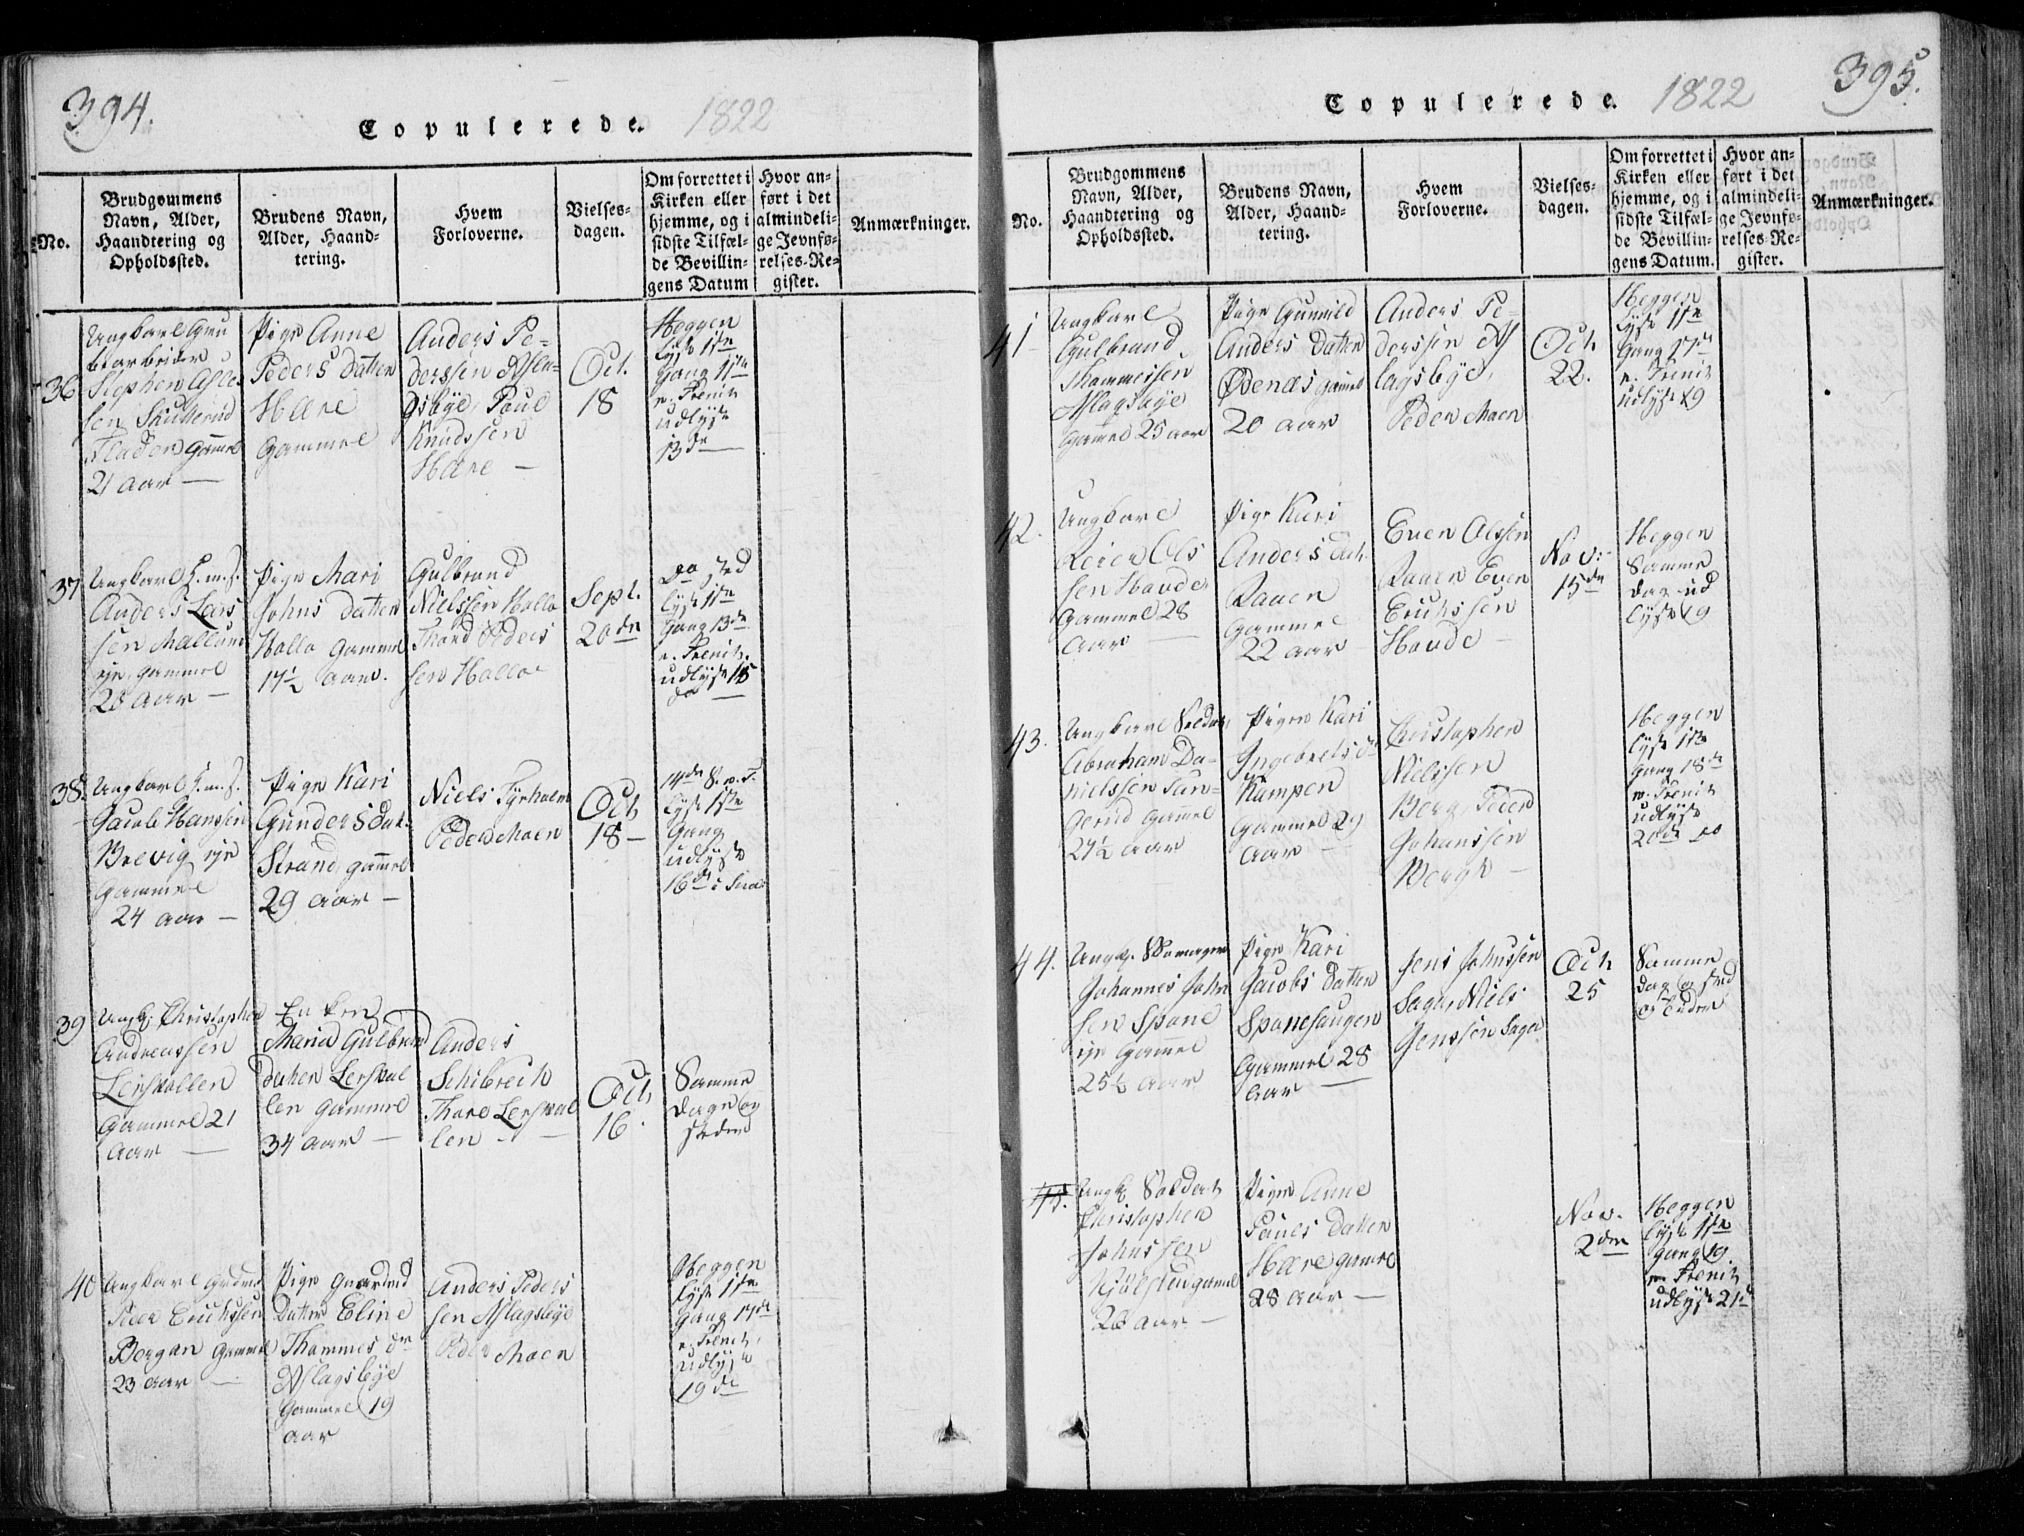 394.
Copulerede.
1822
No.
Brudgommens
Navn, Alder,
Haandtering og
Opholdssted.
Brudens Navn,
Alder, Haand-
tering.
Hvem
Forloverne.
Vielses-
dagen.
Om forrettet i
Kirken eller
hjemme, og i
sidste Tilfæl-
de Bevillin-
gens Datum
Hvor an-
ført i det
almindeli-
ge Jevnfø-
relses-Re-
gister.
Anmærkninger.
36
Ungkarl
Stephen
sen Skullerud
gammel
21 aar
Pige Anne
Peders Datter
Hære
gammel
Anders Pe-
derssen Afla-
gsbye, Poul
Knudssen
Hære
Oct.
18
Heggen
lyst 1ste
Gang 11te
e. Trenit
udlyst
13de
37
Ungkarl H.m.s.
Anders Lars
sen
eje, gammel
28 aar
Pige Mari
Johns Datter
Hollo gammel
17½ aar.
Gulbrand
Nielssen Hollo
Thord Peders
sen Hollo
Sept.
20de
Do sted
lyst 1ste
Gang 13de
e. Trenit.
udlyst 15
do
38.
Ungkarl H.m.s.
Jacob Hanssen
Brevig eje
gammel
24 aar
Pige Kari
Gunders Dat.
Strand, gammel
29 aar
Niels Tyrholm
Peder Moen
Oct.
18
14de S. e. T.
lyst 1ste
Gang
udlyst
16de i
39
Ungk. Christopher
Andreassen
Lersvollen
Gammel 21
aar
Enken
Maria Gulbrand
datter Lersvol
len gammel
34 aar
Anders
Schibreck
Thore Lersvol
len
Oct.
16.
Samme
Dage og
steder
40
Ungkarl
Peder Erichssen
Bergan gammel
23 aar
Pige
Datter Eline
Thommes dr
Aflagsbye
Gammel 19
aar
Anders Peders
sen Aflagsbye
Peder Moen
Heggen
lyst 1ste
Gang 17de
e. Trenit.
udlyst
19de
395.
Copulerede.
1822
No.
Brudgommens
Navn, Alder,
Haandtering og
Opholdssted.
Brudens Navn,
Alder, Haand-
tering.
Hvem
Forloverne.
Vielses-
dagen.
Om forrettet i
Kirken eller
hjemme, og i
sidste Tilfæl-
de Bevillin-
gens Datum.
Hvor an-
ført i det
almindeli-
ge Jevnfø-
relses-Re-
gister.
Anmærkninger.
41
Ungkarl
Gulbrand
Thommessen
Aflagsbye
Gamel 25 aar
Pige Gunnild
Anders Datter
Ødenæs gamel
20 aar
Anders Pe-
derssen Af
lagsbye,
Peder Moen
Oct.
22.
Heggen
lyst 1ste
Gang 17de
e. Trenit
udlyst 19
42.
Ungkarl
Reier Ols
sen Houde
Gammel 28
aar
Pige Kari
Anders dat.
Raaen
Gammel
22 aar
Even Olssen
Raaen Even
Erichssen
Houde
Nov:
15de
Heggen
Samme
dag ud
lyst 19
43.
Ungkarl Soldat
Abraham Da-
nielssen Tun-
gerud gammel
27½ aar
Pigen Kari
Ingebrets d
Kampen
Gammel 29
aar
Christopher
Nielssen
Berg, Peder
Johanssen
Bergh
Heggen
lyst 1ste
Gang 18de
e. Trenit
udlyst
20de do
44.
Ungk.
Johannes John
sen Spone
eje Gammel
25½ aar
Pige Kari
Jacobs Datter
Sponesaugen
Gammel 28
aar
Jens Johnssen
Saga, Niels
Jenssen Saga
Oct.
25
Samme
dag og sted
og Luden
45.
Ungk. Soldat
Christopher
Johnssen
Kjølstad gamel
28 aar
Pige Anne
Poules Datter
Hære gamel
28 aar
Nov.
2den
Heggen
lyst 1ste
gang 19
e. Trenit
udlyst 21d